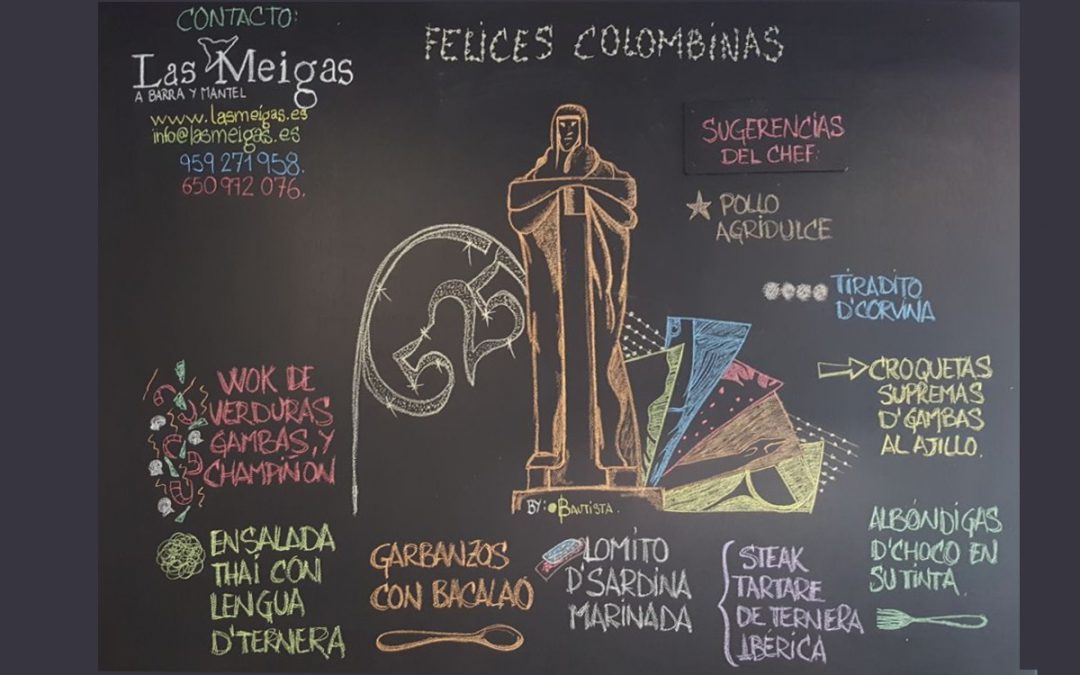 CONTACTO:
Las Meigas
A BARRA Y MANTEL
www.lasmeigas.es
info@lasmeigas.es
959 271 958.
650 972 076.
FELICES COLOMBINAS
SUGERENCIAS
DEL CHEF:
POLLO
AGRIDULCE
TIRADITO
D'CORVINA
CROQUETAS
SUPREMAS
D'GAMBAS
AL AJILLO.
525
WOK DE
VERDURAS
GAMBAS, Y
CHAMPIÑON
BY: Bautista.
ENSALADA
THAI CON
LENGUA
D'TERNERA
GARBANZOS
CON BACALAO
LOMITO
D'SARDINA
MARINADA
STEAK
TARTARE
DE TERNERA
IBERICA
ALBÓNDIGAS
D'CHOCO EN
SU TINTA.